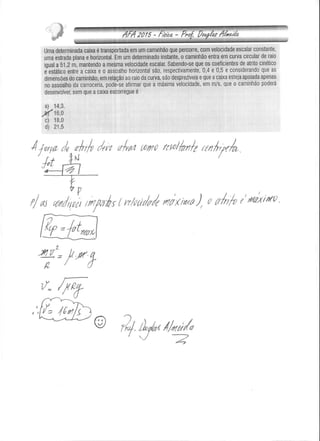 AFA 2015 - Física - Prof. Douglas Almeida
Uma determinada caixa é transportada em um caminhão que percorre, com velocidade escalar constante,
uma estrada plana e horizontal. Em um determinado instante, o caminhão entra em uma curva circular de raio
igual a 51,2 m, mantendo a mesma velocidade escalar. Sabendo-se que os coeficientes de atrito cinético
e estático entre a caixa e o assoalho horizontal são, respectivamente, 0,4 e 0,5 e considerando que as
dimensões do caminhão, em relação ao raio da curva, são desprezíveis e que a caixa esteja apoiada apenas
no assoalho da carroceria, pode-se afirmar que a máxima velocidade, em m/s, que o caminhão poderá
desenvolver, sem que a caixa escorregue é
a) 14,3.
16,0
c) 18,0
d) 21,5
A força de atrito deve atuar como resultante centrípeta.
fat N
P
p/ as condições impostas (velocidade máxima), o atrito é máximo.
Rcp = fat max
mv²/R = μ.m.g
v = √μRg
∴ v = 16 m/s
Prof. Douglas Almeida